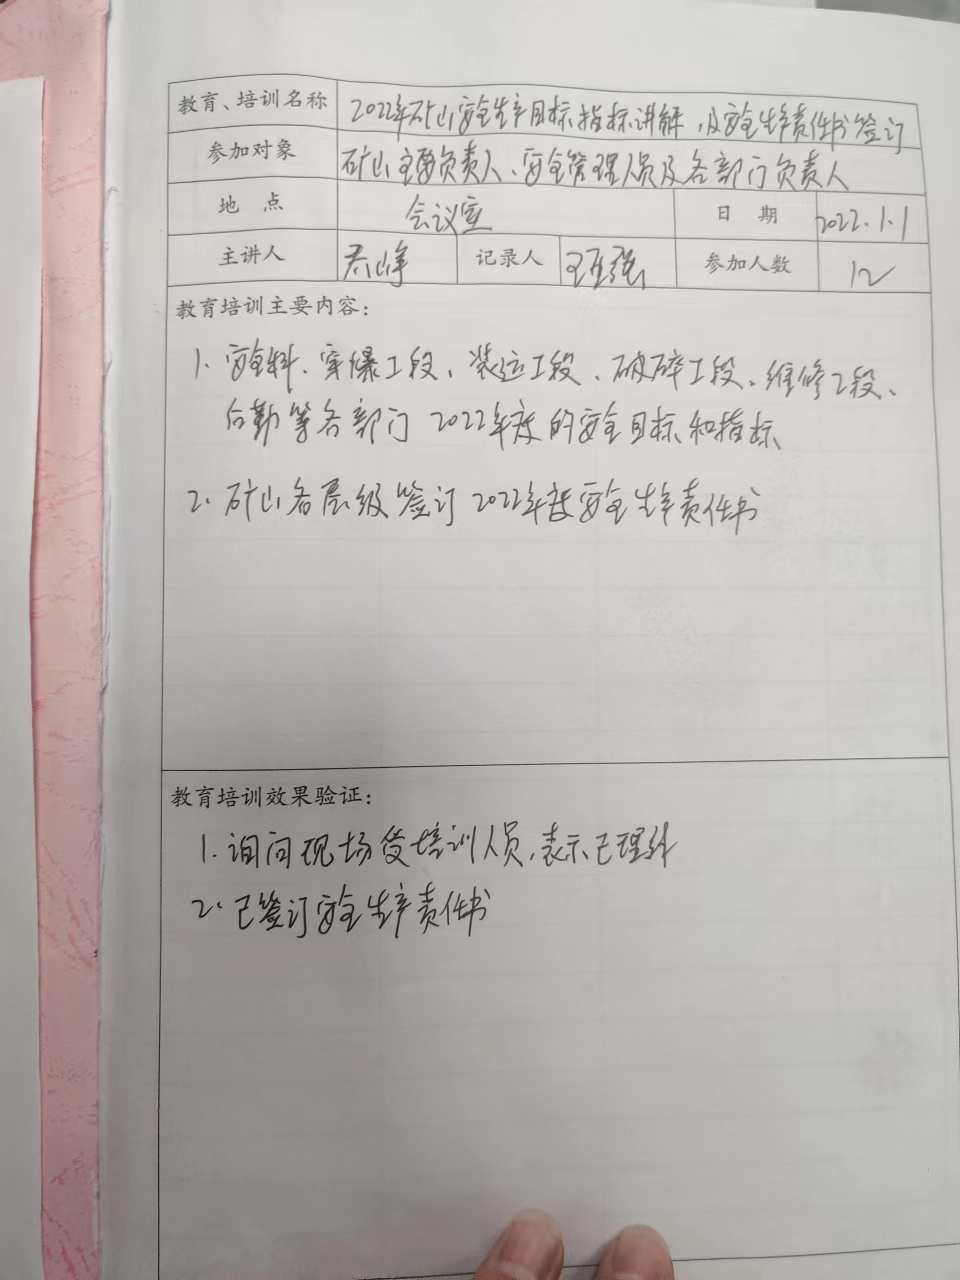 教育、培训名称 2022年矿山安全生产目标指标讲解，及安全生产责任书签订
参加对象 矿山主要负责人、安全管理人员及各部门负责人
地 点 会议室 日 期 2022.1.1
主讲人 乔峰 记录人 王亚强 参加人数 12
教育培训主要内容：
1. 安全科、穿爆工段、装运工段、破碎工段、维修工段、
后勤等各部门2022年度的安全目标和指标
2. 矿山各层级签订2022年度安全生产责任书
教育培训效果验证：
1. 询问现场受培训人员，表示已理解
2. 已签订安全生产责任书